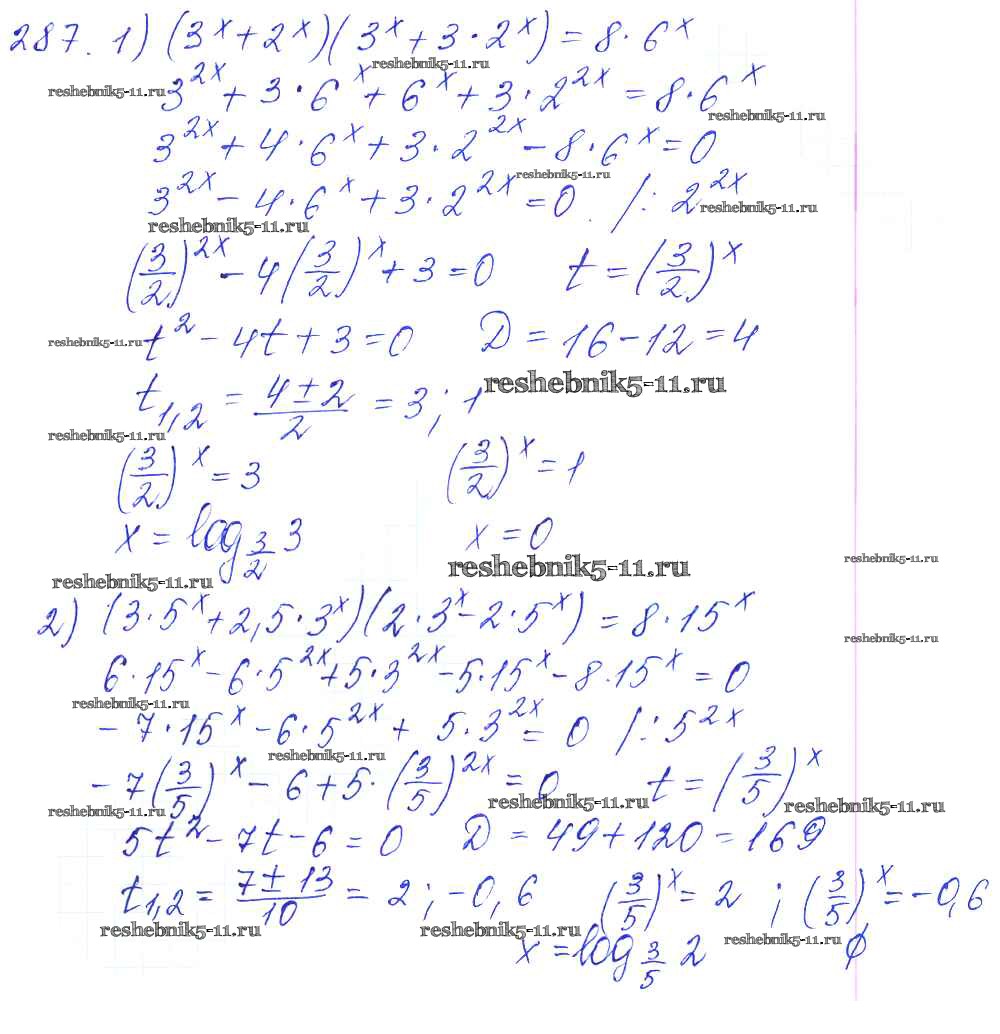 287. 1) (3^x + 2^x)(3^x + 3 · 2^x) = 8 · 6^x
reshebnik5-11.ru
reshebnik5-11.ru
3^{2x} + 3 · 6^x + 6^x + 3 · 2^{2x} = 8 · 6^x
reshebnik5-11.ru
3^{2x} + 4 · 6^x + 3 · 2^{2x} - 8 · 6^x = 0
reshebnik5-11.ru
3^{2x} - 4 · 6^x + 3 · 2^{2x} = 0 . / : 2^{2x}
reshebnik5-11.ru
reshebnik5-11.ru
(3/2)^{2x} - 4(3/2)^x + 3 = 0 t = (3/2)^x
reshebnik5-11.ru
t^2 - 4t + 3 = 0 D = 16 - 12 = 4
reshebnik5-11.ru
t_{1,2} = (4 ± 2)/2 = 3; 1
reshebnik5-11.ru
(3/2)^x = 3 (3/2)^x = 1
x = log_{3/2} 3 x = 0
reshebnik5-11.ru
reshebnik5-11.ru
reshebnik5-11.ru
2) (3 · 5^x + 2,5 · 3^x)(2 · 3^x - 2 · 5^x) = 8 · 15^x
reshebnik5-11.ru
6 · 15^x - 6 · 5^{2x} + 5 · 3^{2x} - 5 · 15^x - 8 · 15^x = 0
reshebnik5-11.ru
- 7 · 15^x - 6 · 5^{2x} + 5 · 3^{2x} = 0 / : 5^{2x}
reshebnik5-11.ru
- 7(3/5)^x - 6 + 5 · (3/5)^{2x} = 0 t = (3/5)^x
reshebnik5-11.ru
reshebnik5-11.ru
reshebnik5-11.ru
5t^2 - 7t - 6 = 0 D = 49 + 120 = 169
t_{1,2} = (7 ± 13)/10 = 2; -0,6 (3/5)^x = 2 ; (3/5)^x = -0,6
reshebnik5-11.ru
reshebnik5-11.ru
reshebnik5-11.ru
x = log_{3/5} 2 ∅